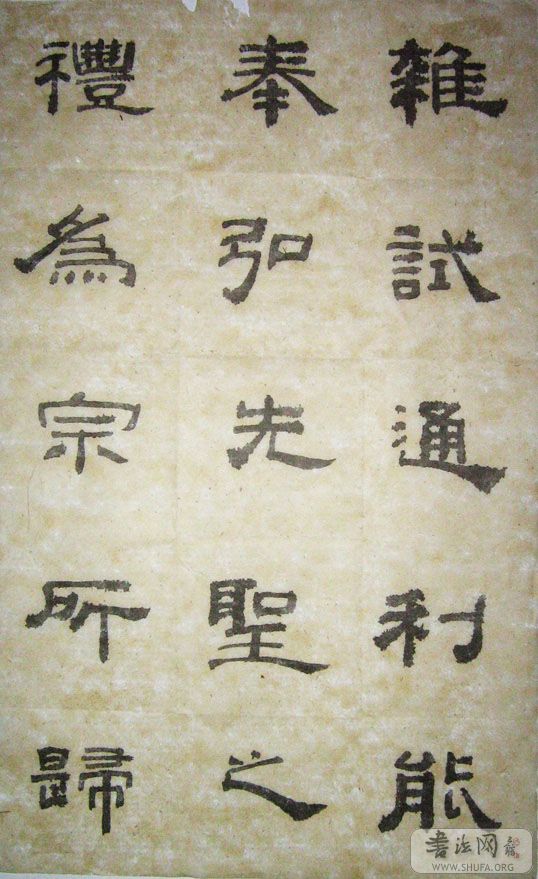 雜試通利能
奉弘先聖之
禮為宗所歸
书法网
WWW.SHUFA.ORG